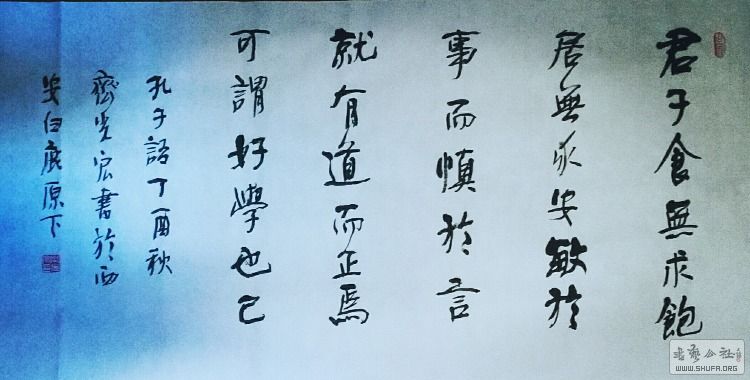 君子食無求飽
居無求安敏於
事而慎於言
就有道而正焉
可謂好學也已
孔子語丁酉秋
齊光宏書於西
安白鹿原下
書藝公社
WWW.SHUFA.ORG